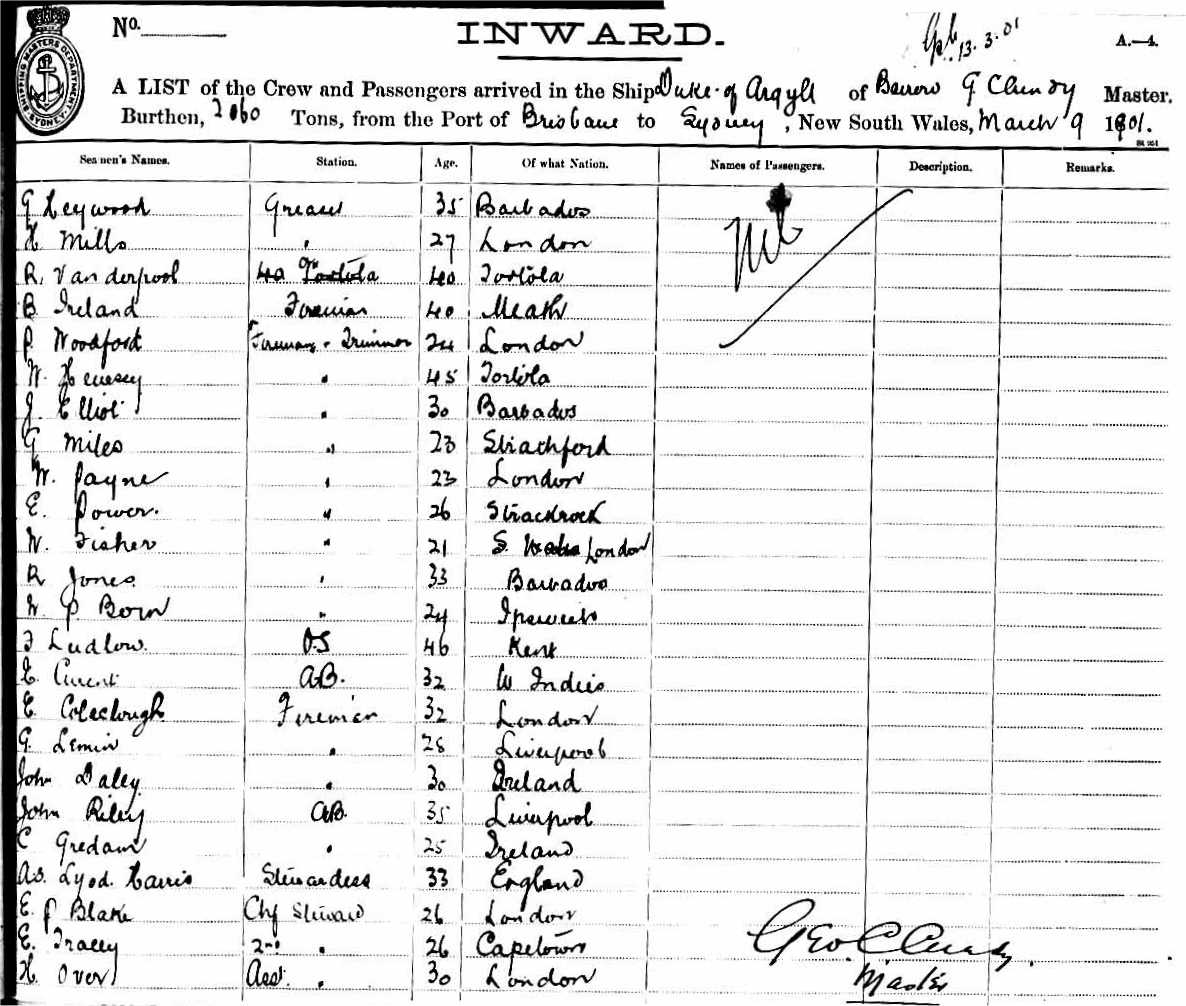 No.
INWARD.
13.3.01
A.—4.
SHIPPING MASTERS DEPARTMENT SYDNEY
A LIST of the Crew and Passengers arrived in the Ship Duke of Argyll of Barrow G Clundy Master.
Burthen, 2060 Tons, from the Port of Brisbane to Sydney, New South Wales, March 9 1901.
Seamen's Names. Station. Age. Of what Nation. Names of Passengers. Description. Remarks.
G Heywood Greaser 35 Barbados Nil
H Mills " 27 London
R. Vanderpool 40 Tortola
B Ireland Fireman 40 Meath
P. Woodford Fireman & Trimmer 24 London
W. Henesey " 45 Tortola
J. Elliot " 30 Barbados
G Miles " 23 Strachford
W. Payne " 23 London
E. Power. " 26
W. Fisher " 21 London
R Jones " 33 Barbados
W. P Born " 24 Ipswich
F Ludlow. OS 46 Kent
A.B. 32 W Indies
E Coleclough Fireman 32 London
G. Lemin " 28 Liverpool
John Daley " 30 Ireland
John Riley AB. 35 Liverpool
C Gredam " 25 Ireland
Harris Stewardess 33 England
E. P Blake Chf Steward 26 London
E. Tracey 2nd " 26 Capetown
H. Over Asst. " 30 London
Geo. C Clundy.
Master